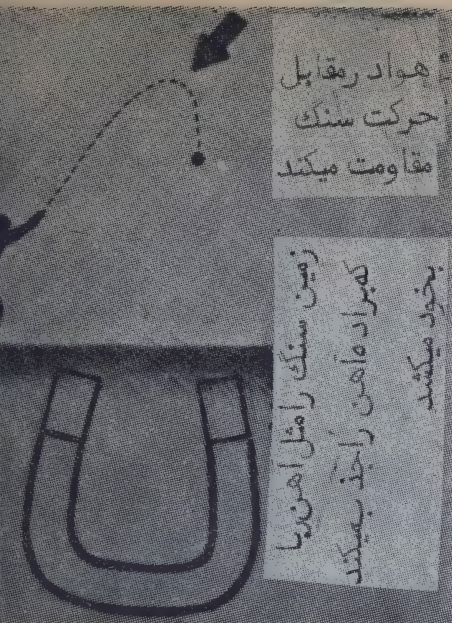 هوا در مقابل
حرکت سنک
مقاومت میکند
زمین سنک را مثل آهن ربا
که براده آهن را جذب میکند
بخود میکشد